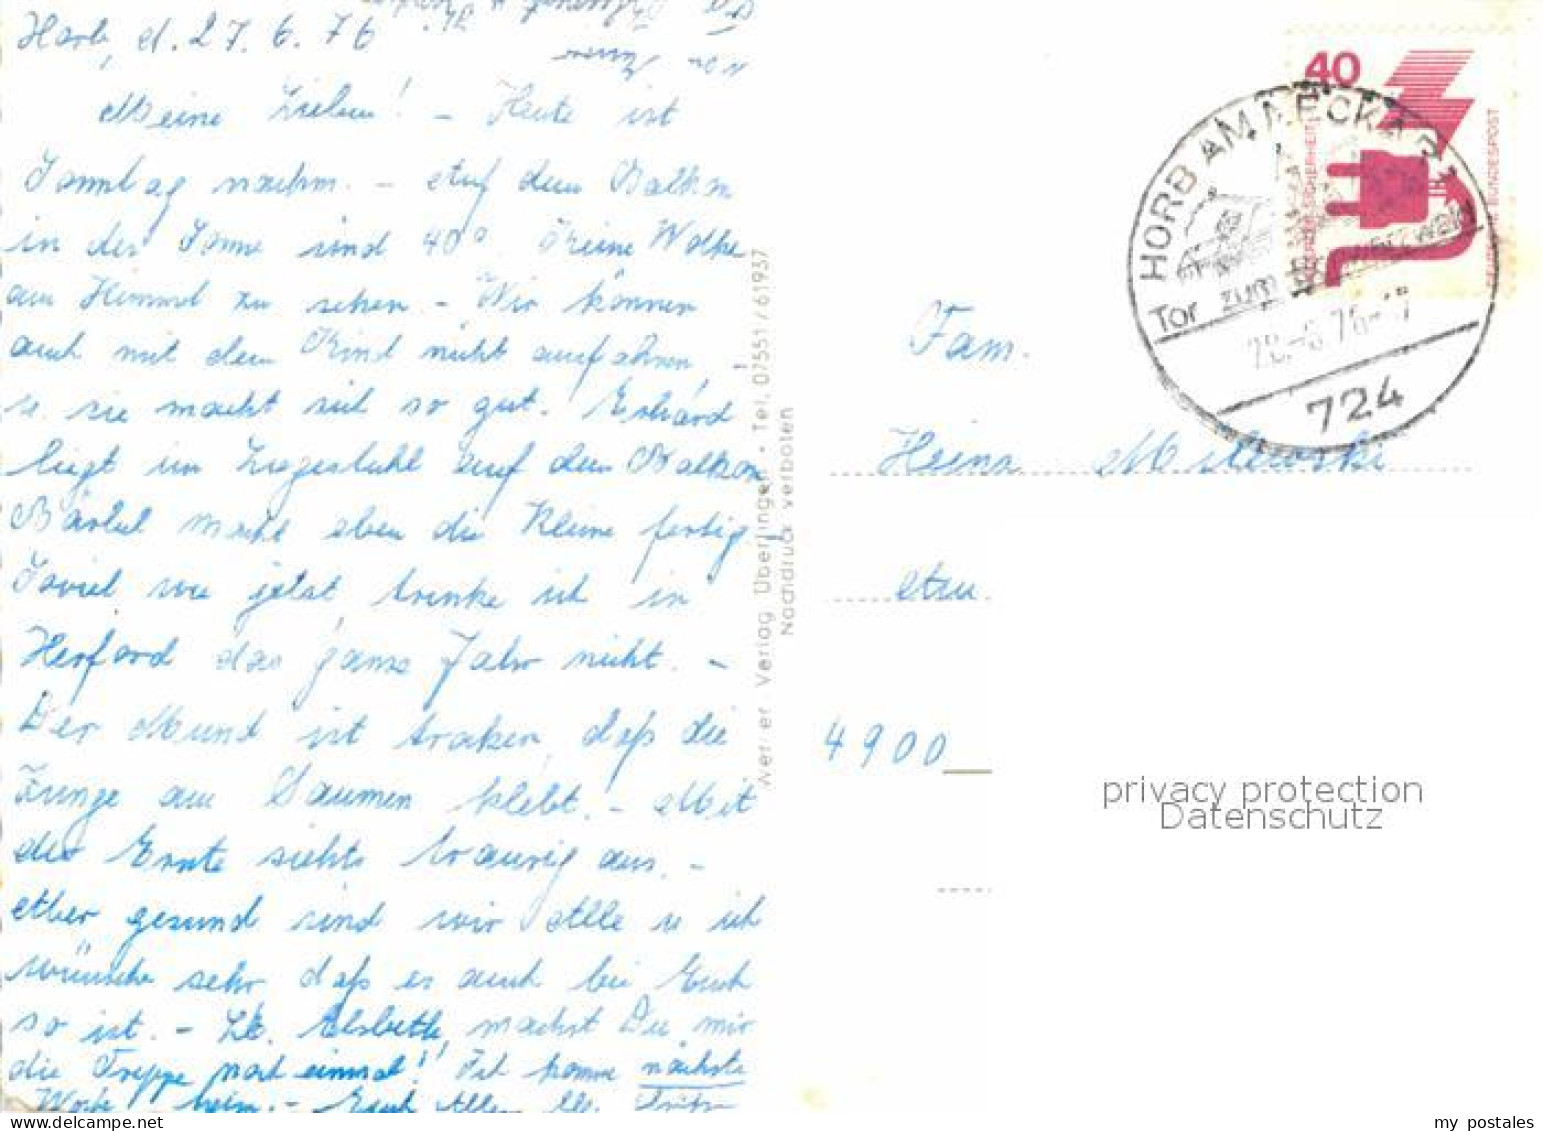 Horb, d. 27. 6. 76
Meine Lieben! - Heute ist
Sonntag nachm. - Auf dem Balkon
in der Sonne sind 40° Keine Wolke
am Himmel zu sehen. - Wir können
auch mit dem Kind nicht ausfahren,
u. sie macht sich so gut. Erhard
liegt im Liegestuhl auf dem Balkon
Bärbel macht eben die Kleine fertig
Soviel wie jetzt trinke ich in
Herford das ganze Jahr nicht. -
Der Mund ist trocken, daß die
Zunge am Gaumen klebt. - Mit
der Ernte siehts traurig aus. -
Aber gesund sind wir Alle u ich
wünsche sehr daß es auch bei Euch
so ist. - Lb. Elsbeth, machst Du mir
die Treppe noch einmal! Ich komme nächste
Woche heim. - Euch Allen lb. Grüße
Werner Verlag Überlingen - Tel. 07551/61937
Nachdruck verboten
40
DEUTSCHE BUNDESPOST
HORB AM NECKAR 1
Tor zum Schwarzwald
28.-6.76-17
724
Fam.
Heinz Milewski
4900
privacy protection
Datenschutz
my_postales
www.delcampe.net